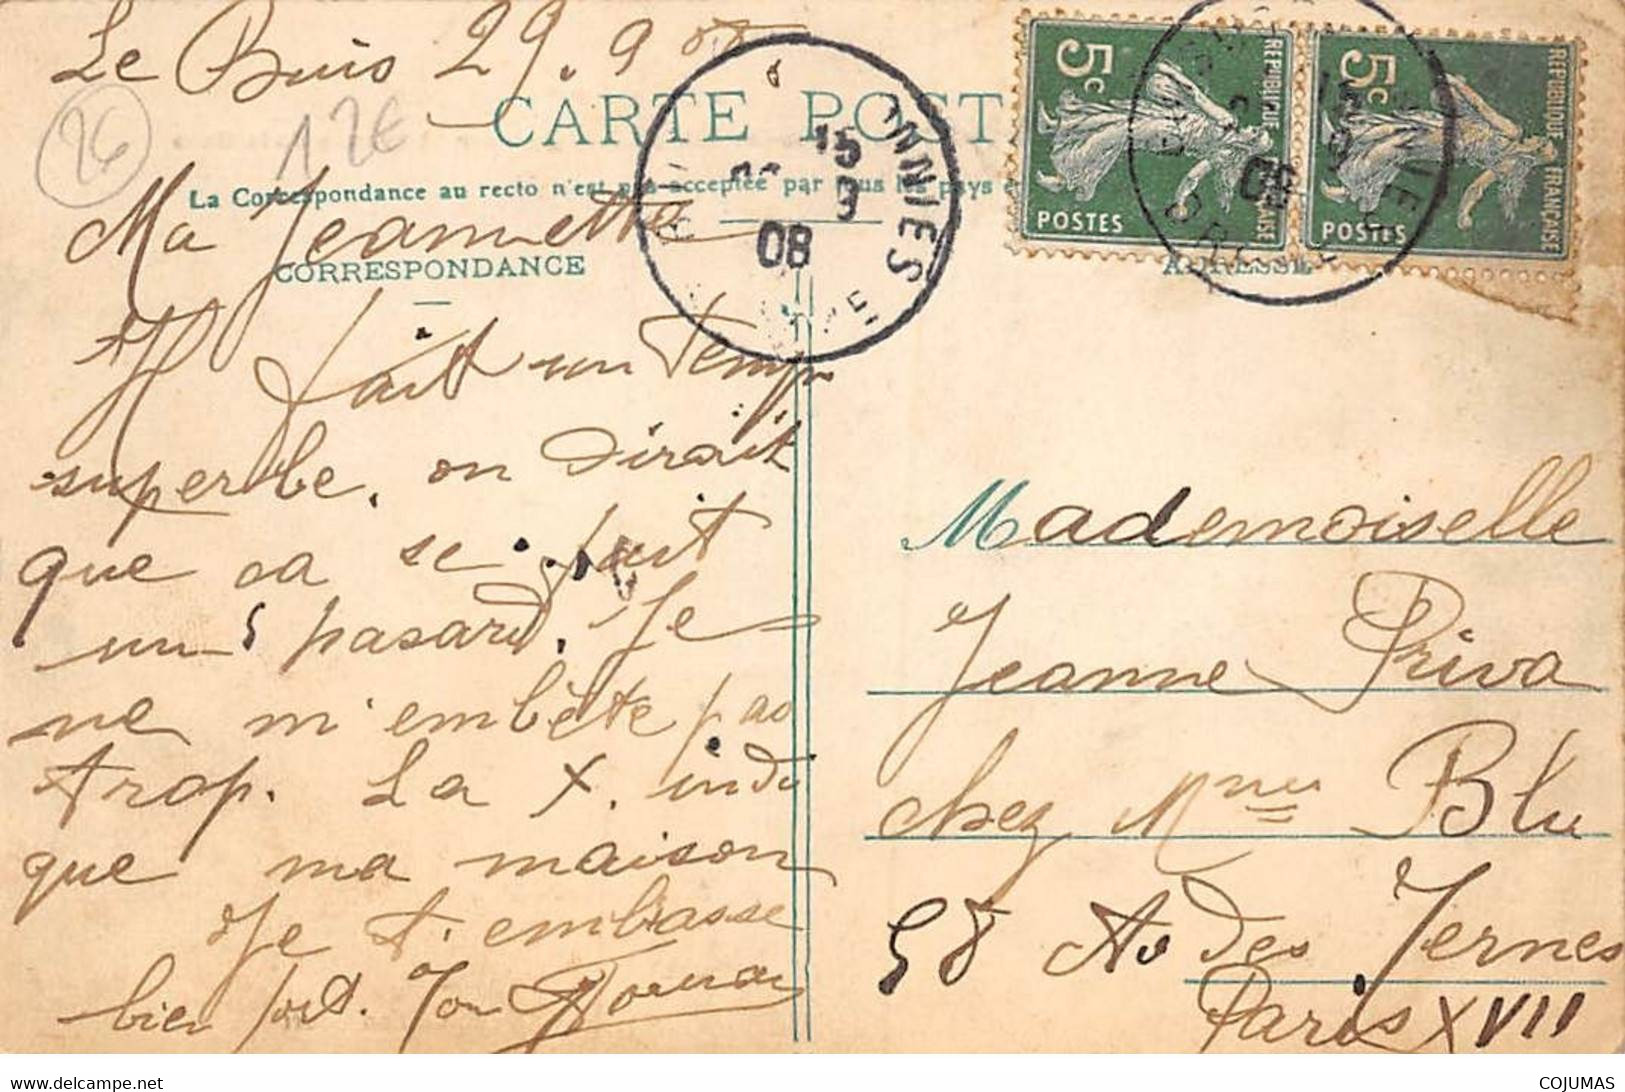 Le Buis 29.9
26
12€
CARTE POST
La Correspondance au recto n'est pas acceptée par tous les pays
Ma Jeannette
CORRESPONDANCE
ADRESSE
Il fait un temps
superbe. on dirait
que ça se fait
un pasard. Je
ne m'embête pas
trop. La X. indi
que ma maison
Je t'embrasse
bien fort. Ton
Mademoiselle
Jeanne Priva
chez Mme Blu
58 Av des Ternes
Paris XVII
5c
REPUBLIQUE FRANÇAISE
POSTES
5c
REPUBLIQUE FRANÇAISE
POSTES
15
9
08
NNIES
08
https://www.delcampe.net
COJUMAS